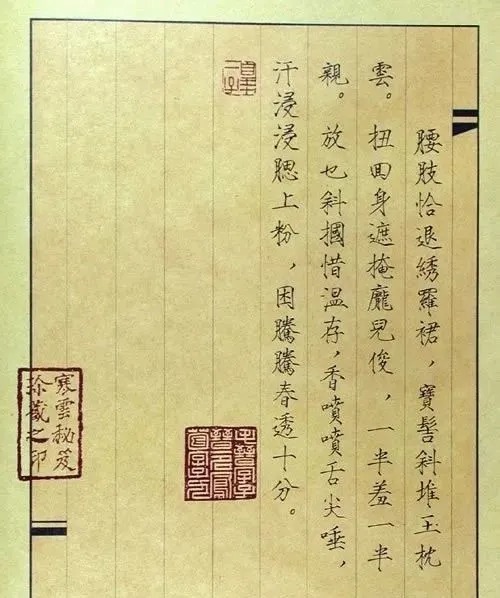 腰肢恰退綉羅裙，寶髻斜堆玉枕
雲。扭回身遮掩龐兒俊，一半羞一半
親。放乜斜摑惜溫存，香噴噴舌尖唾，
汗浸浸腮上粉，困騰騰春透十分。
寒雲秘笈
珍藏之印